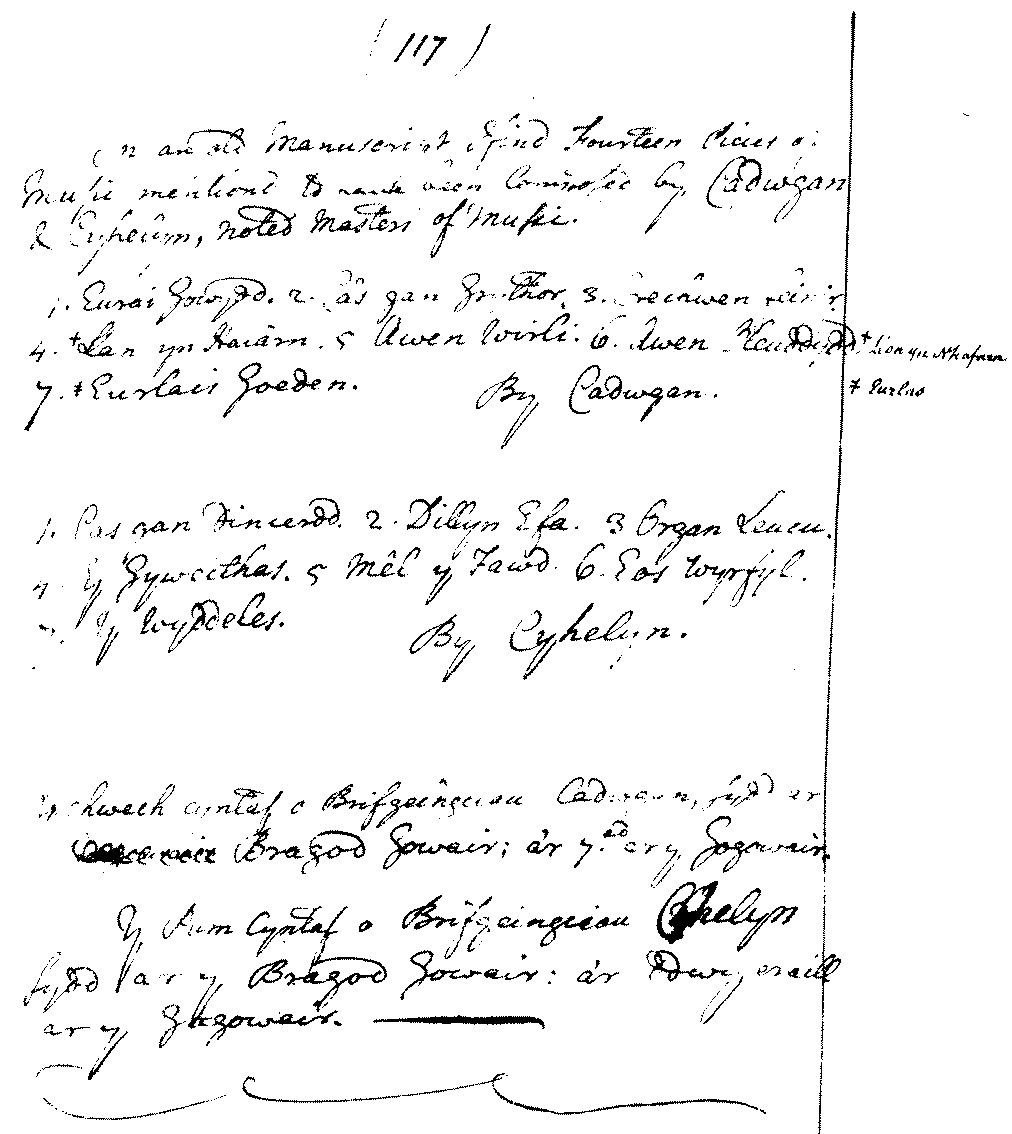 ( 117 )
an old Manuscript I find Fourteen Pieces of
Music mention'd to have been Composed by Cadwgan
& Cyhelyn, noted Masters of Music.
1. Eurai Gowydd. 2. Câs gan Grythor. 3.
4. ‡Lan yn Haiarn. 5 Awen Wirli. 6. Awen ‡ Llon yn Nhafarn
7. ‡Eurlais Goeden. By Cadwgan. ‡ Eurlas
1. Cas gan Dincerdd. 2. Dillyn Efa. 3 Organ Leucu.
4. Y Gyweithas. 5 Mêl y Fawd. 6. Eos Wyrfyl.
7. Y Wyddeles. By Cyhelyn.
Y chwech cyntaf o Brifgeingciau Cadwgan, sydd ar
Bragod Gowair; a'r 7.ed ar y Gogowair.
Y Pum Cyntaf o Brifgeingciau Cyhelyn
sydd ar y Bragod Gowair: a'r ddwy eraill
ar y Gogowair.